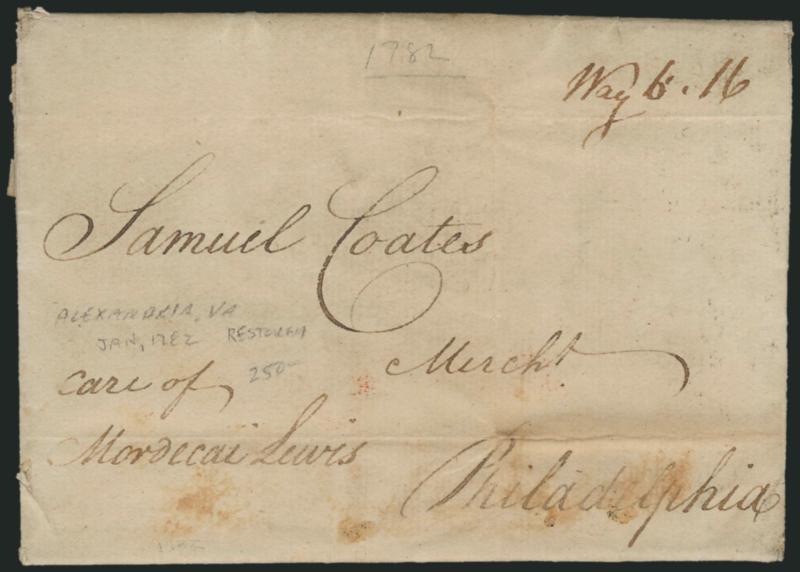 1782
Way 6. 16
Samuel Coates
ALEXANDRIA, VA
JAN, 1782 RESTORED
care of 250- Mercht
Mordecai Lewis
Philadelphia